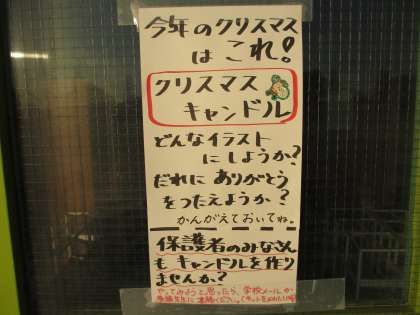 今年のクリスマス
はこれ!
クリスマス
キャンドル
どんなイラスト
にしようか?
だれに ありがとう
をつたえようか?
かんがえておいてね。
保護者のみなさん
もキャンドルを作り
ませんか?
やってみようと思ったら、学校メールか